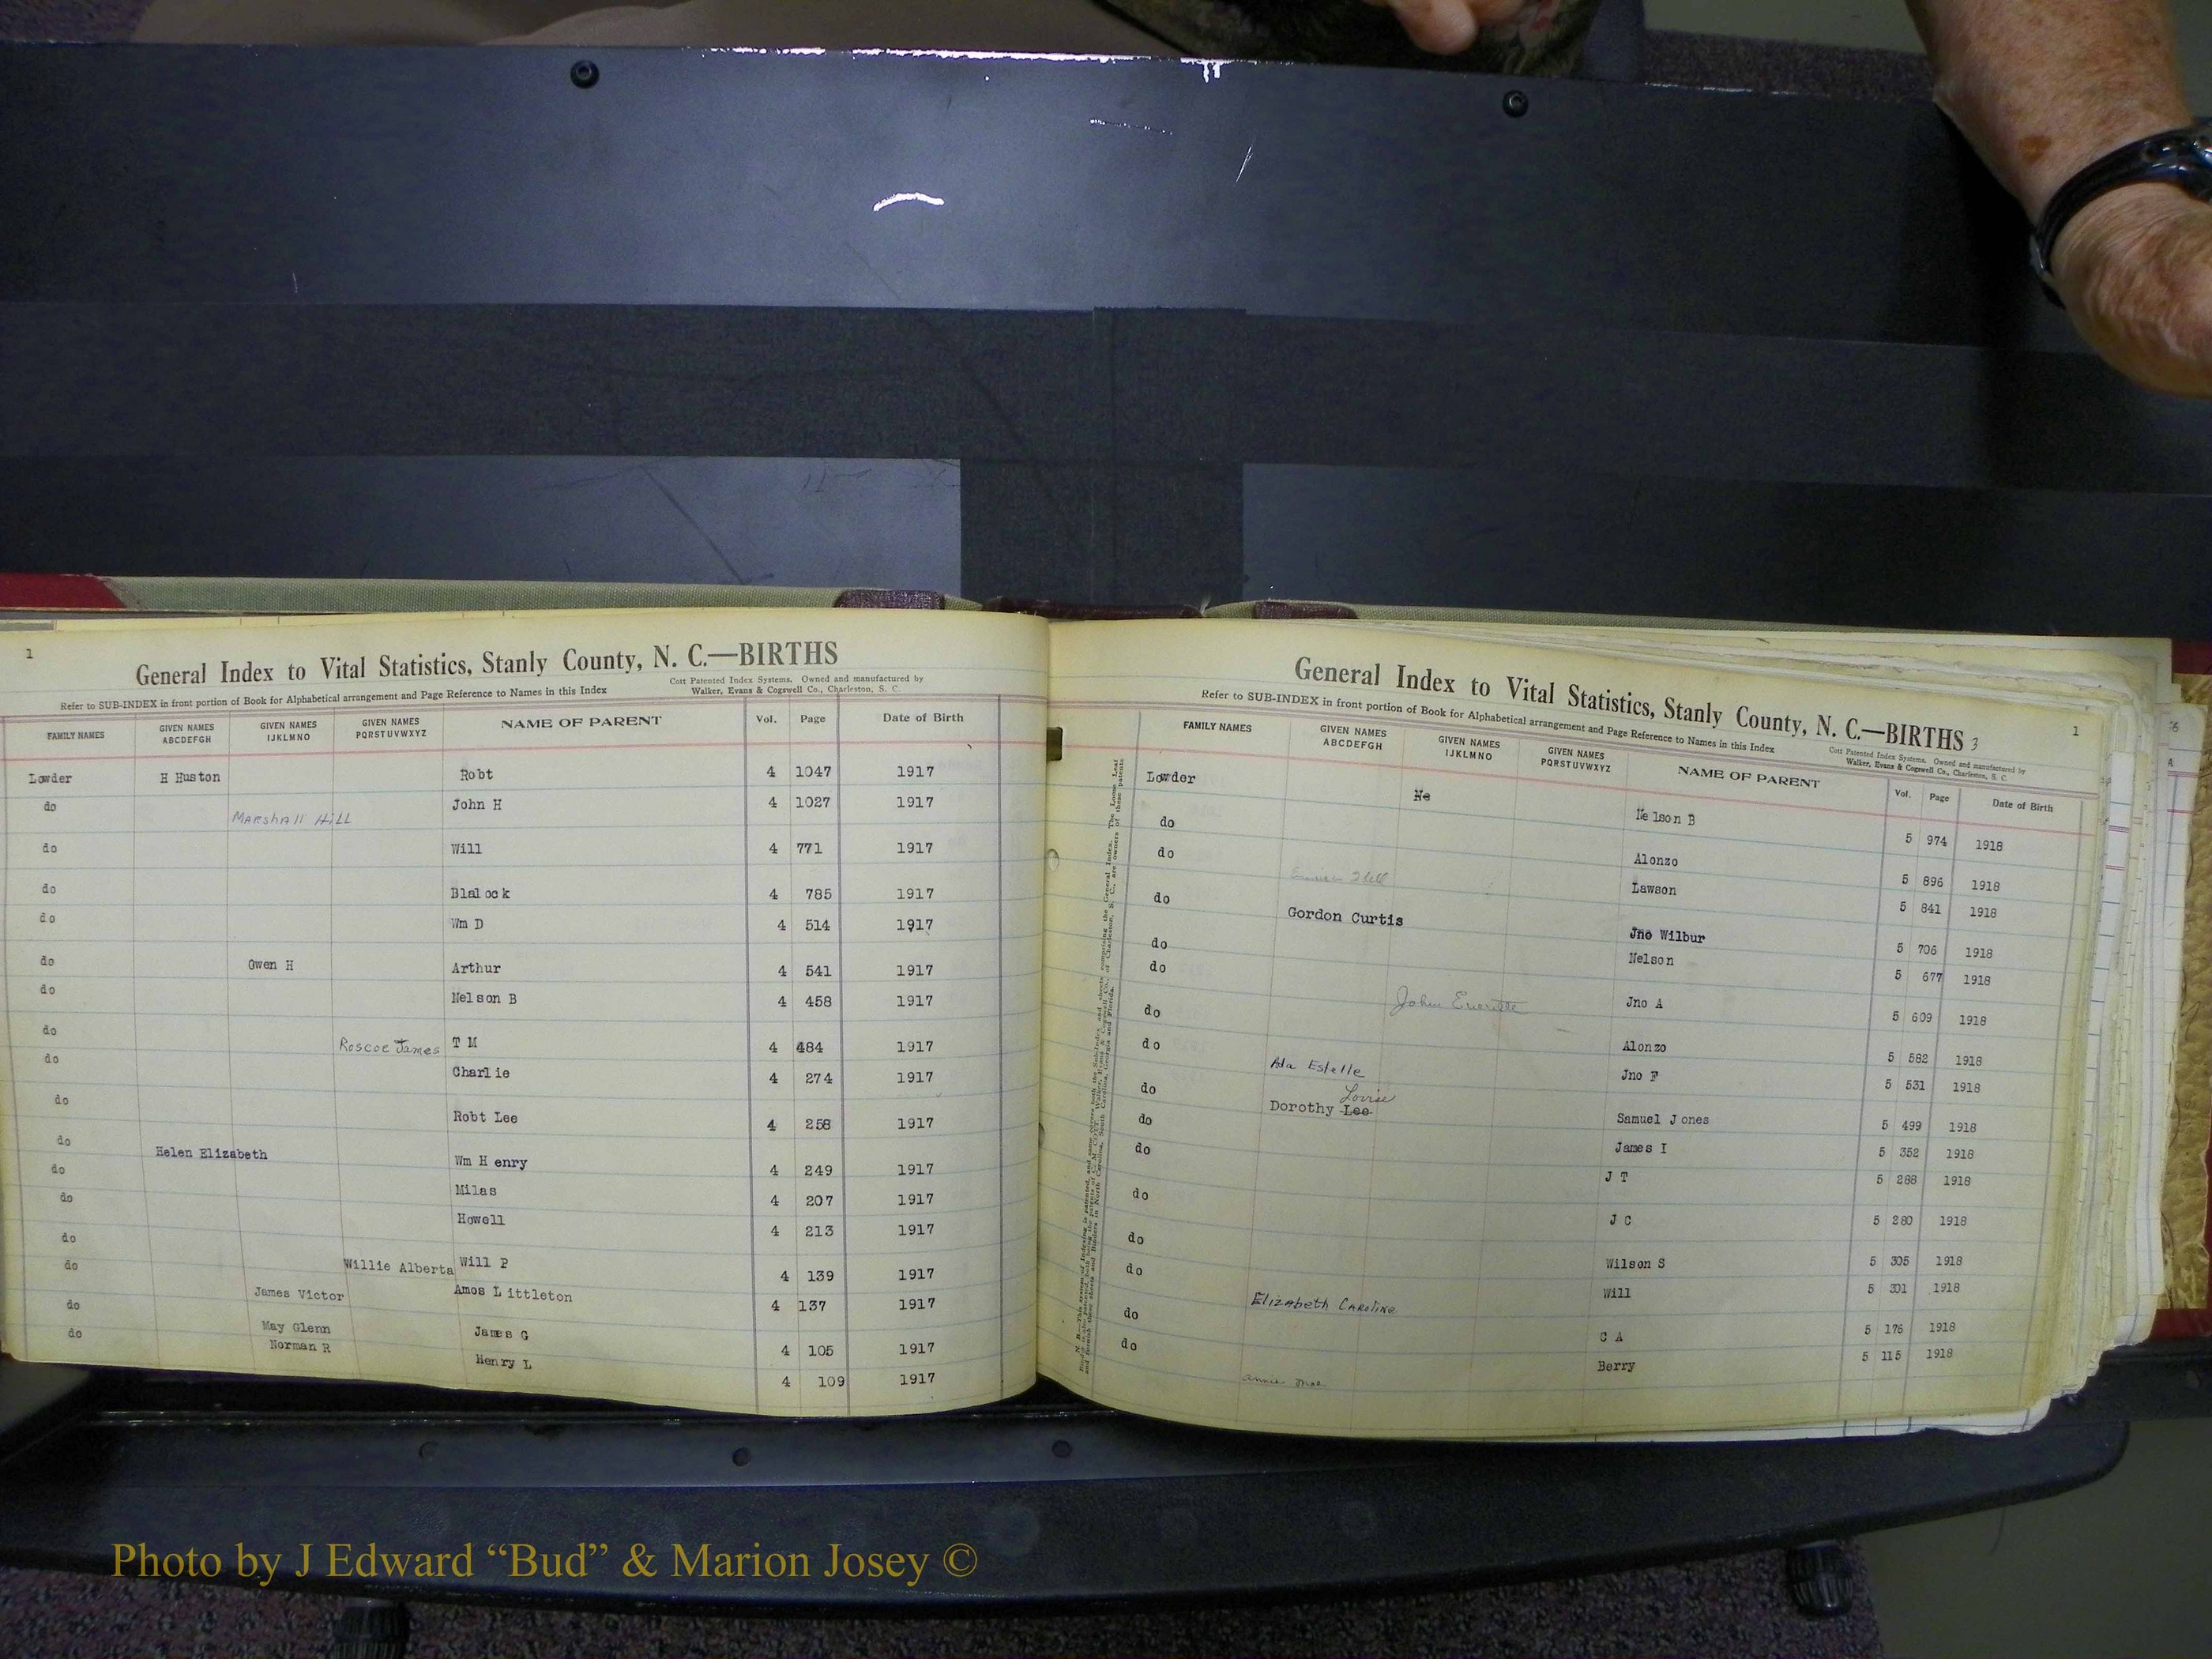 1
General Index to Vital Statistics, Stanly County, N. C.—BIRTHS
Refer to SUB-INDEX in front portion of Book for Alphabetical arrangement and Page Reference to Names in this Index
Cott Patented Index Systems. Owned and manufactured by
Walker, Evans & Cogswell Co., Charleston, S. C.
FAMILY NAMES GIVEN NAMES ABCDEFGH GIVEN NAMES IJKLMNO GIVEN NAMES PQRSTUVWXYZ NAME OF PARENT Vol. Page Date of Birth
Lowder H Huston Robt 4 1047 1917
do Marshall Hill John H 4 1027 1917
do Will 4 771 1917
do Blalock 4 785 1917
do Wm D 4 514 1917
do Owen H Arthur 4 541 1917
do Nelson B 4 458 1917
do Roscoe James T M 4 484 1917
do Charlie 4 274 1917
do Robt Lee 4 258 1917
do Helen Elizabeth Wm Henry 4 249 1917
do Milas 4 207 1917
do Howell 4 213 1917
do Willie Alberta Will P 4 139 1917
do James Victor Amos Littleton 4 137 1917
do May Glenn James G 4 105 1917
do Norman R Henry L 4 109 1917
General Index to Vital Statistics, Stanly County, N. C.—BIRTHS 3
1
Refer to SUB-INDEX in front portion of Book for Alphabetical arrangement and Page Reference to Names in this Index
Cott Patented Index Systems. Owned and manufactured by
Walker, Evans & Cogswell Co., Charleston, S. C.
FAMILY NAMES GIVEN NAMES ABCDEFGH GIVEN NAMES IJKLMNO GIVEN NAMES PQRSTUVWXYZ NAME OF PARENT Vol. Page Date of Birth
Lowder Ne Nelson B 5 974 1918
do Alonzo 5 896 1918
do Lawson 5 841 1918
do Gordon Curtis Jno Wilbur 5 706 1918
do Nelson 5 677 1918
do John Everette Jno A 5 609 1918
do Alonzo 5 582 1918
do Ada Estelle Jno F 5 531 1918
Lovise
do Dorothy Lee Samuel Jones 5 499 1918
do James I 5 352 1918
do J T 5 288 1918
do J C 5 280 1918
do Wilson S 5 305 1918
do Will 5 301 1918
do Elizabeth Caroline C A 5 176 1918
do Annie Mae Berry 5 115 1918
Photo by J Edward “Bud” & Marion Josey ©